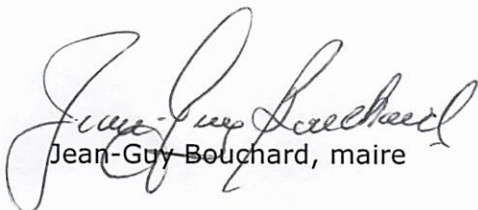 Jean-Guy Bouchard
Jean-Guy Bouchard, maire